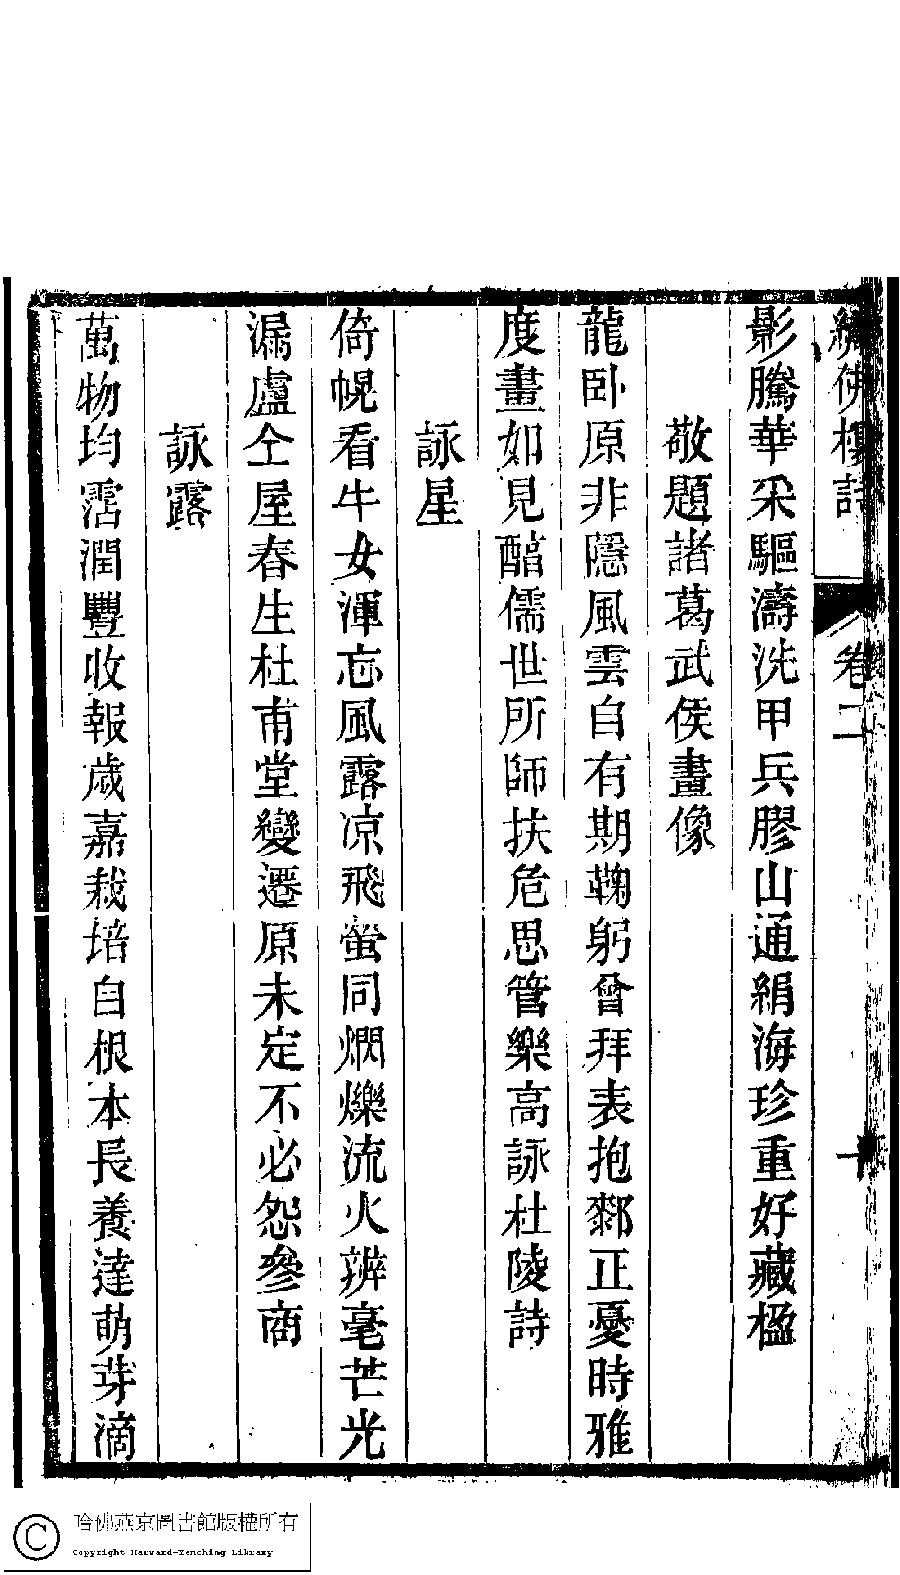 繡佛樓詩 卷二 十
影騰華采驅濤洗甲兵膠山通絹海珍重好藏楹
敬題諸葛武侯畫像
龍卧原非隱風雲自有期鞠躬曾拜表抱鄴正憂時雅
度畫如見醕儒世所師扶危思管樂高詠杜陵詩
詠星
倚幌看牛女渾忘風露凉飛螢同爓爍流火辨毫芒光
漏盧仝屋春生杜甫堂變遷原未定不必怨參商
詠露
萬物均霑潤豐收報歲嘉栽培自根本長養達萌芽滴
哈佛燕京圖書館版權所有
Copyright Harvard-Yenching Library